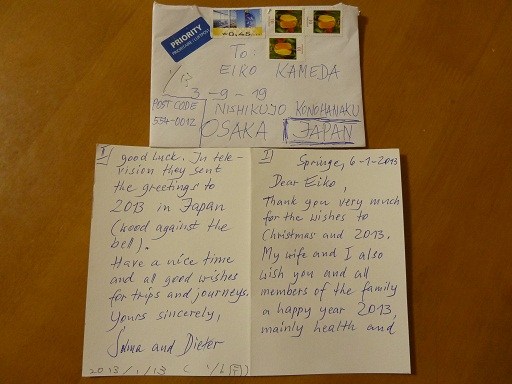 PRIORITY
0,45
To:
EIRO KAMEDA
3-9-19
POST CODE
554-0012
NISHIKUJO KONOHANAKU
OSAKA JAPAN
I
Springe, 6-1-2013
Dear Eiko,
Thank you very much
for the wishes to
Christmas and 2013.
My wife and I also
wish you and all
members of the family
a happy year 2013,
mainly health and
good luck. In tele-
vision they sent
the greetings to
2013 in Japan
(wood against the
bell).
Have a nice time
and all good wishes
for trips and journeys.
Yours sincerely,
and Dieter
2013/1/13